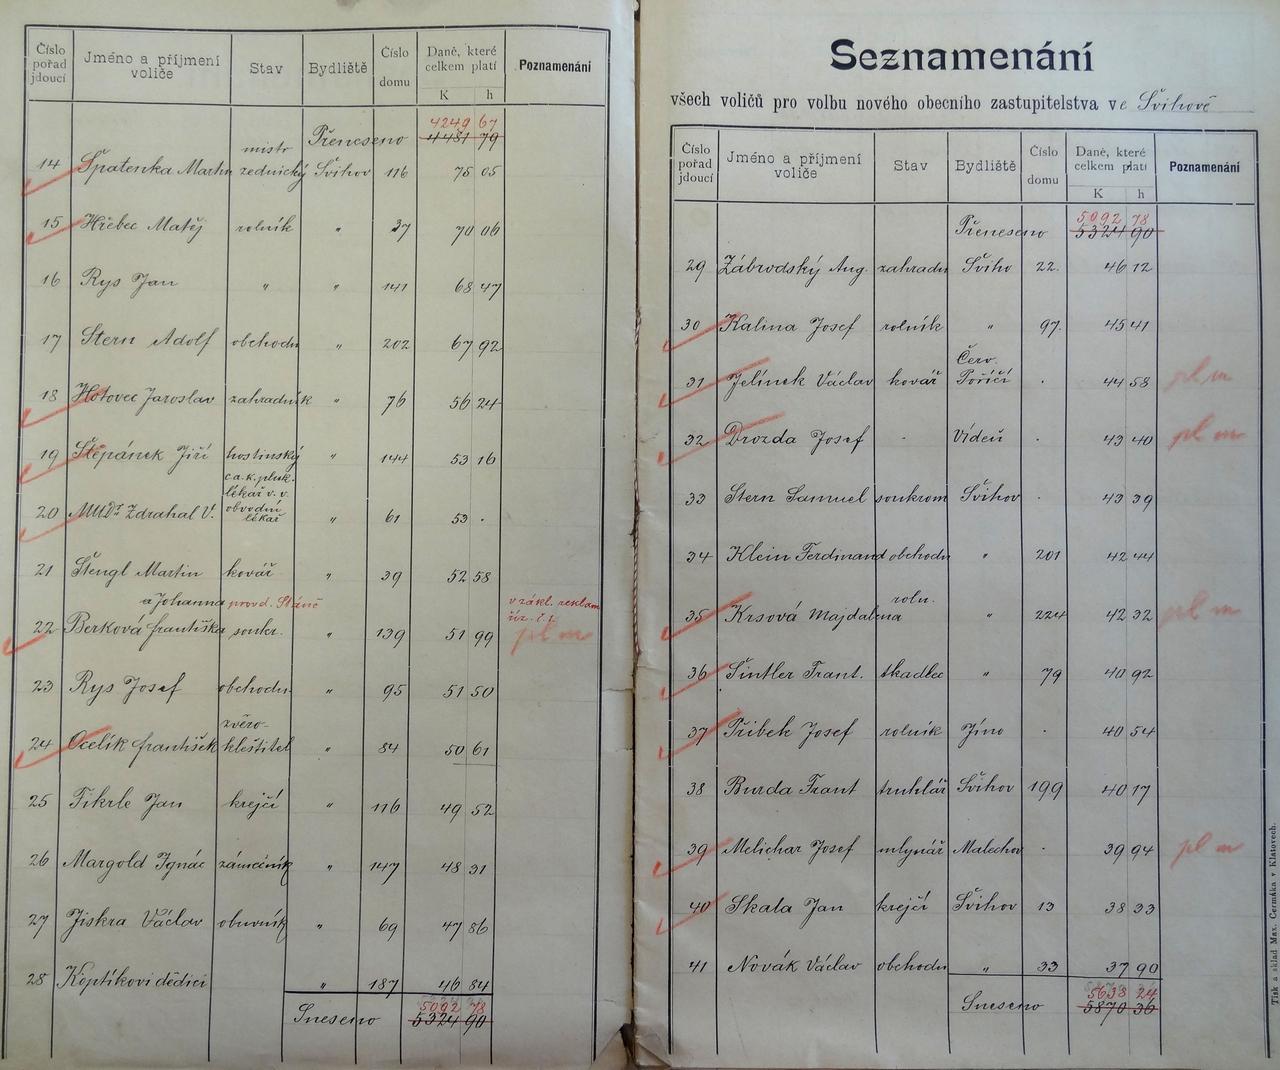 Číslo pořad jdoucí | Jméno a příjmení voliče | Stav | Bydliště | Číslo domu | Daně, které celkem platí K h | Poznamenání
4249 67
Přeneseno 4481 79
14 Špatenka Martin mistr zednický Švihov 116 75 05
15 Hřebec Matěj rolník " 37 70 06
16 Rys Jan " " 141 68 47
17 Stern Adolf obchodn " 202 67 92
18 Hotovec Jaroslav zahradník " 76 56 24
19 Štěpánek Jiří hostinský " 144 53 16
20 MUDr Zdrahal V. c. a. k. pluk. lékař v. v. obvodní lékař " 61 53 .
21 Štengl Martin kovář " 39 52 58
a Johanna provd. v zákl. reklam
22 Berková Františka soukr. " 139 51 99 pl m
23 Rys Josef obchodn. " 95 51 50
24 Ocelík František zvěrokleštitel " 84 50 61
25 Fikrle Jan krejčí " 116 49 52
26 Margold Ignác zámečník " 147 48 31
27 Jiskra Václav obuvník " 69 47 86
28 Koptíkovi dědici " 187 46 84
5092 78
Sneseno 5324 90
Seznamenání
všech voličů pro volbu nového obecního zastupitelstva ve Švihově
Číslo pořad jdoucí | Jméno a příjmení voliče | Stav | Bydliště | Číslo domu | Daně, které celkem platí K h | Poznamenání
5092 78
Přeneseno 5324 90
29 Zábrodský Aug. zahradn Šviho 22. 46 12
30 Kalina Josef rolník " 97. 45 41
31 Jelínek Václav kovář Červ. Poříčí . 44 58 pl m
32 Drozda Josef - Vídeň . 43 40 pl m
33 Stern Samuel soukrom Švihov . 43 39
34 Klein Ferdinand obchodn " 201 42 44
35 Krsová Majdalena roln. " 224 42 32 pl m
36 Šintler Frant. tkadlec " 79 40 92
37 Přibek Josef rolník Jíno . 40 54
38 Burda Frant truhlář Švihov 199 40 17
39 Melichar Josef mlynář Malechov . 39 94 pl m
40 Skala Jan krejčí Švihov 13 38 33
41 Novák Václav obchodn " 33 37 90
5638 24
Sneseno 5870 36
Tisk a sklad Max. Čermáka v Klatovech.